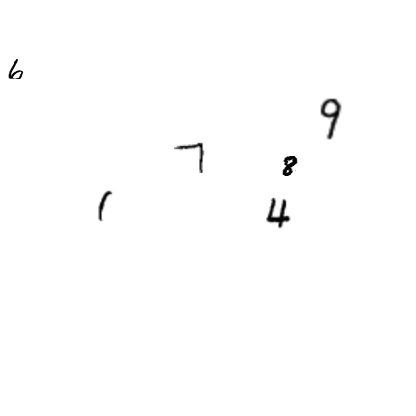 6
9
7
8
1 4